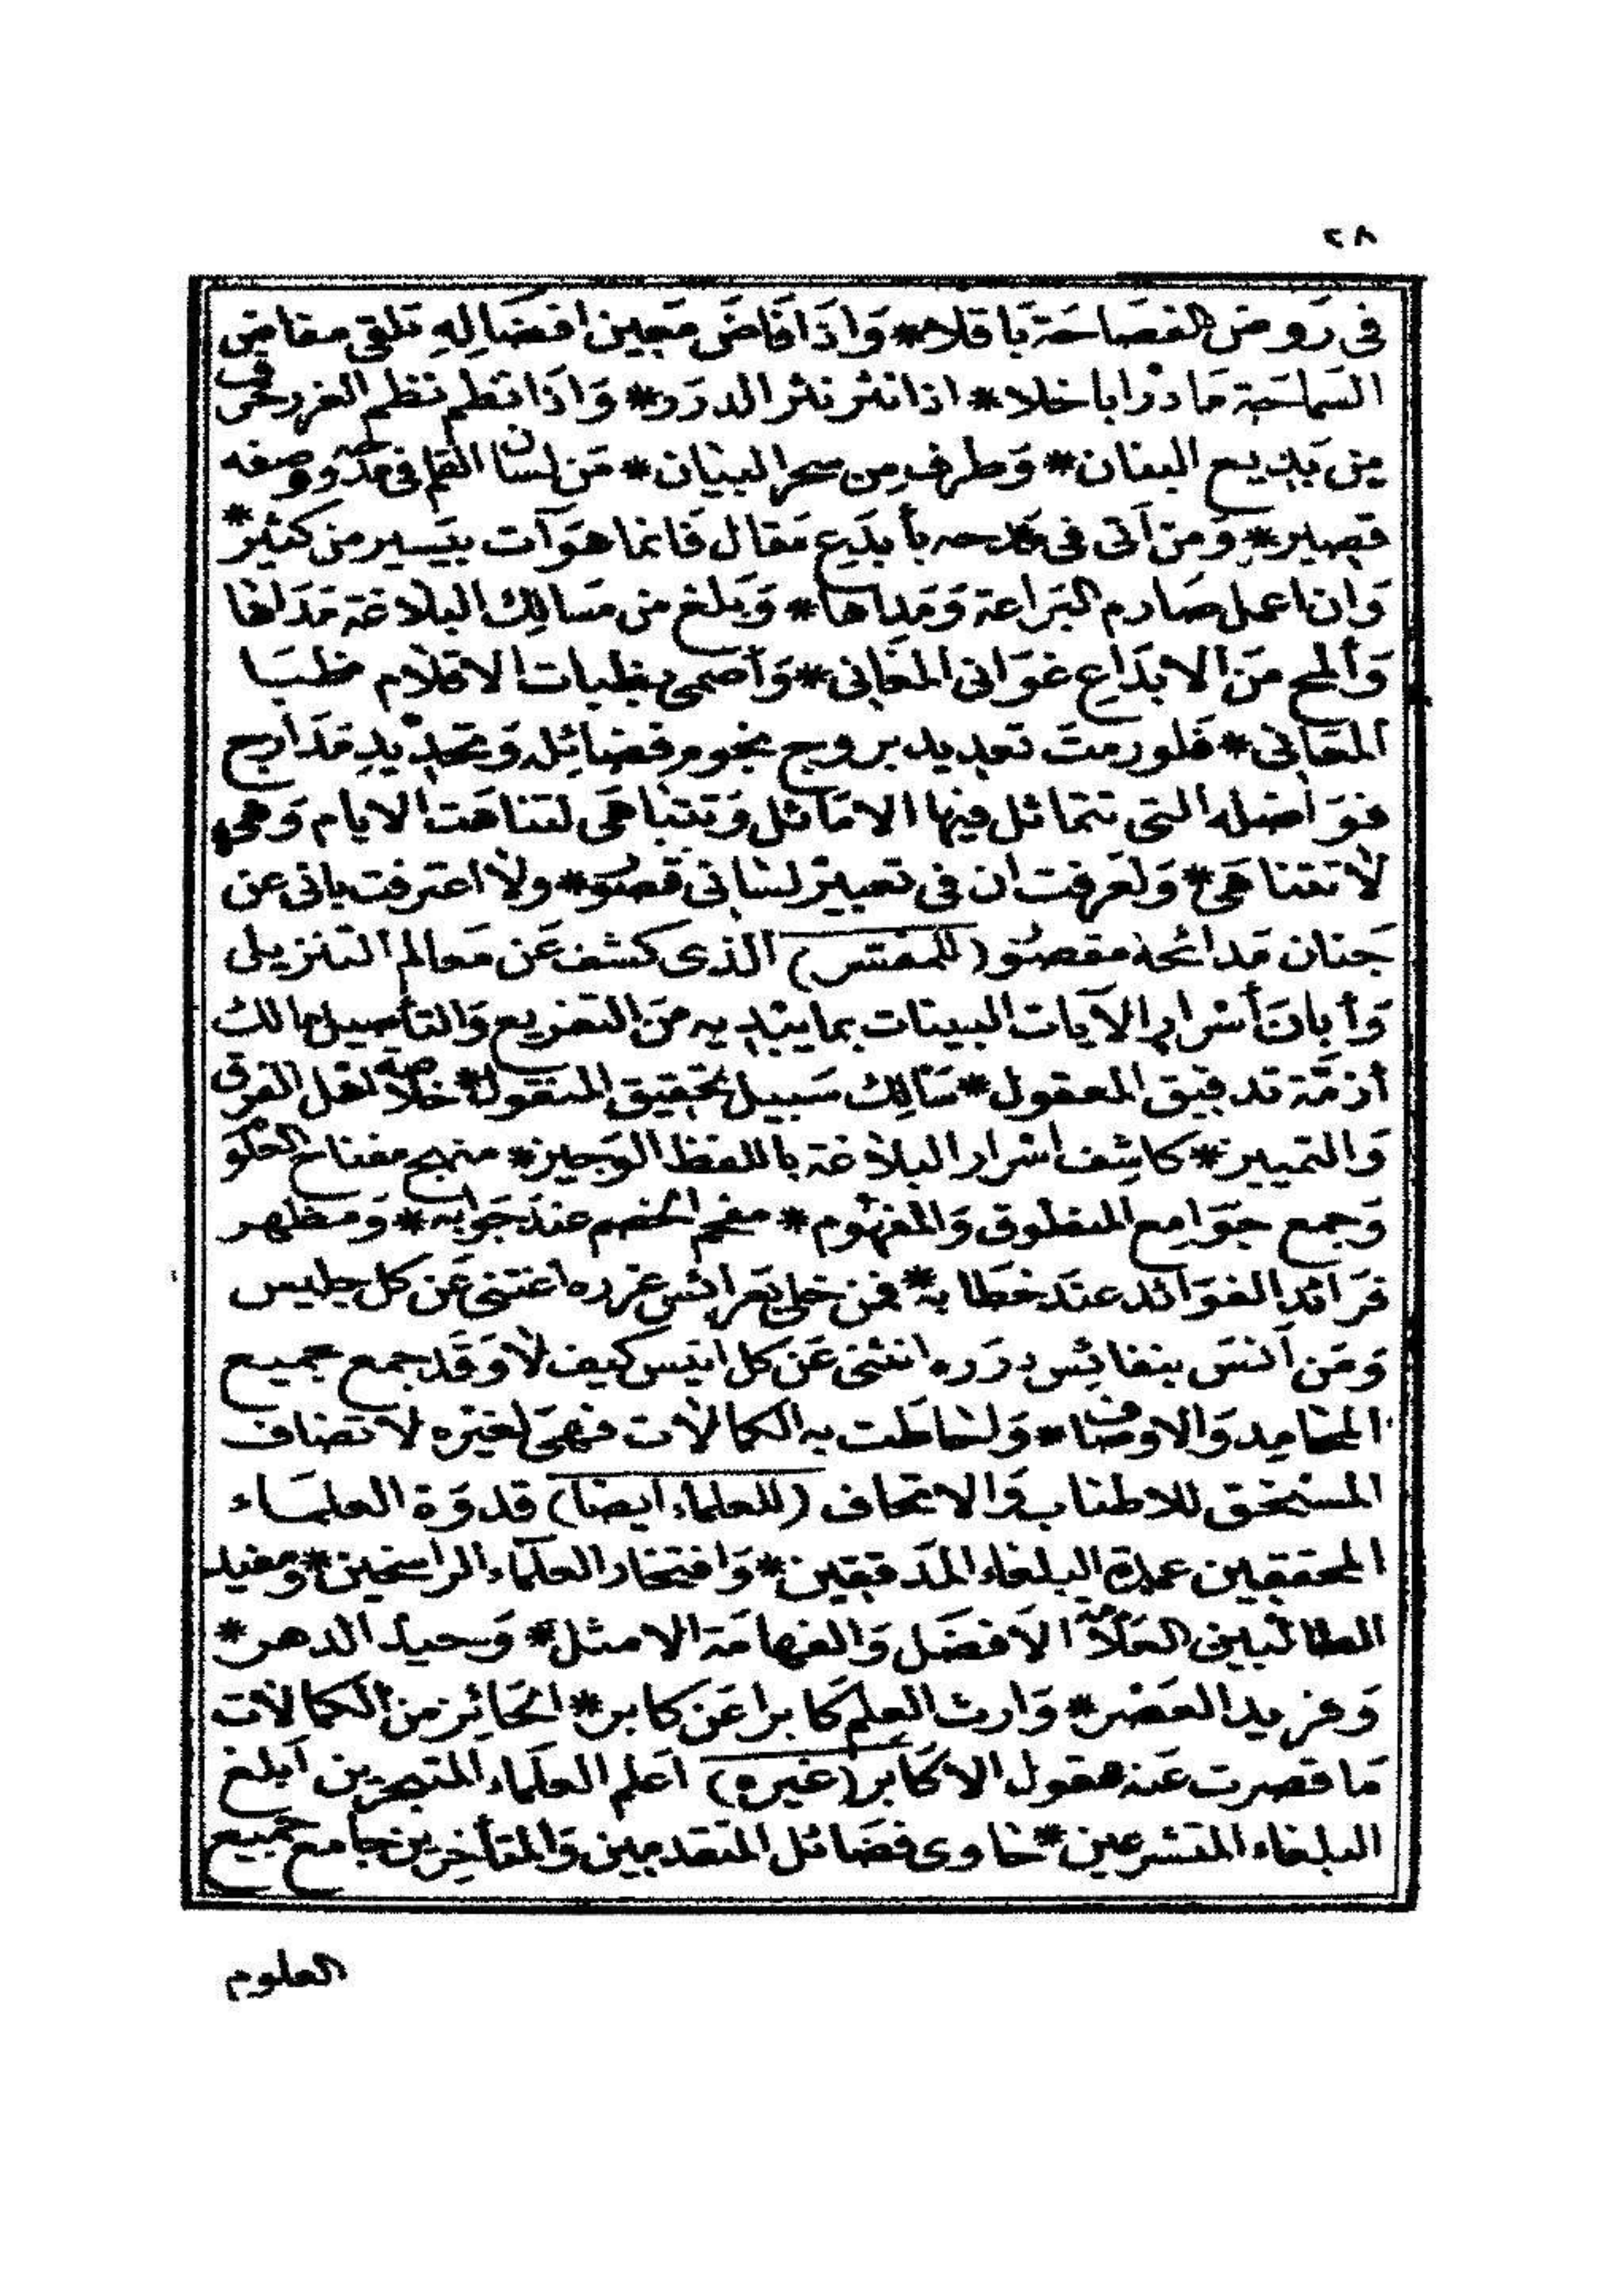 ٢٨
فى رَوض الفصَاحَة بَاقلا * وَاذَا فَاضَ مَعِين افضَالِهِ تلقى مفاض
السَماحَة مَادرا باخلا * اذا نثر نثر الدرَر * وَاذَا نظم نظم الغرر فى
مِن بَدِيع البنان * وَطرفٍ مِن سحر البيَان * مَن لسان القلم فى مدحه ووصفه
قصِير * وَمن أتى فى مَدحه بأبدَع مَقال فَانما هوَ آت بيَسير من كثير *
وَان اعمل صَارم البَراعة وَمَداها * وَبَلغ من مسَالِك البلاغة مَدَاها
وَألمح مَن الابدَاع غوَانى المغَانى * وَأصمى بظبات الاقلام ظبَا
المعَانى * فَلو رمتَ تعديد بروج نجوم فضَائِله وَتحدِيدِ مَدَارج
فوَاضله التى تتماثل فيها الامَاثل وَتتبَاهَى لتناهَت الايام وَهى
لا تتناهَى * وَلعَرفت ان فى تعبير لسَانى قصُور * ولا اعترفت بانى عن
جَنان مَدائحه مقصُور (للمفسّر) الذى كشف عَن مَعالم التنزيل
وَأبانَ أسْرار الآيات البينات بما يبديه مَن التفريع وَالتأصيل مالك
أزمَّة تدقيق المعقول * سَالِك سَبيل تحقيق المنقول * خلاصة اهل الفرق
وَالتمييز * كاشِف اسْرار البلاغة باللفظ الوَجيز * منهج مفتاح العلوم
وَجمع جوَامِع المنطوق وَالمفهُوم * مفحم الخصم عندَ جَوابه * وَمظهر
فرَائد الفوَائد عندَ خطَابه * فمن خلى بعَرائس غرره اغتنى عَن كل جليس
وَمَن آنسَ بنفائِس دررَه انثنى عَن كل انيس كيف لا وَقَد جمع جميع
المحَامِد وَالاوصاف * وَلحَاطَت به الكمالات فهىَ لغيْره لا تضاف
المستحق للاطناب وَالاتحاف (للعلماء ايضا) قدوَة العلمَاء
المحققين عمدة البلغاء المدَققين * وَافتخار العلمَاء الراسخين * ومفيد
الطالبين العَلامة الأَفضَل وَالفهامَة الامثل * وَحيد الدهر *
وَفريد العَصْر * وَارث العِلم كَابرا عَن كابر * الحَائِز من الكمالات
مَا قصرت عَنه عقول الاكَابر (غيره) أعلم العلَماء المتبحرين أبلغ
البلغاء المتشرعين * حَاوى فضَائل المتقدمين وَالمتأخرين جامع جميع
العلوم